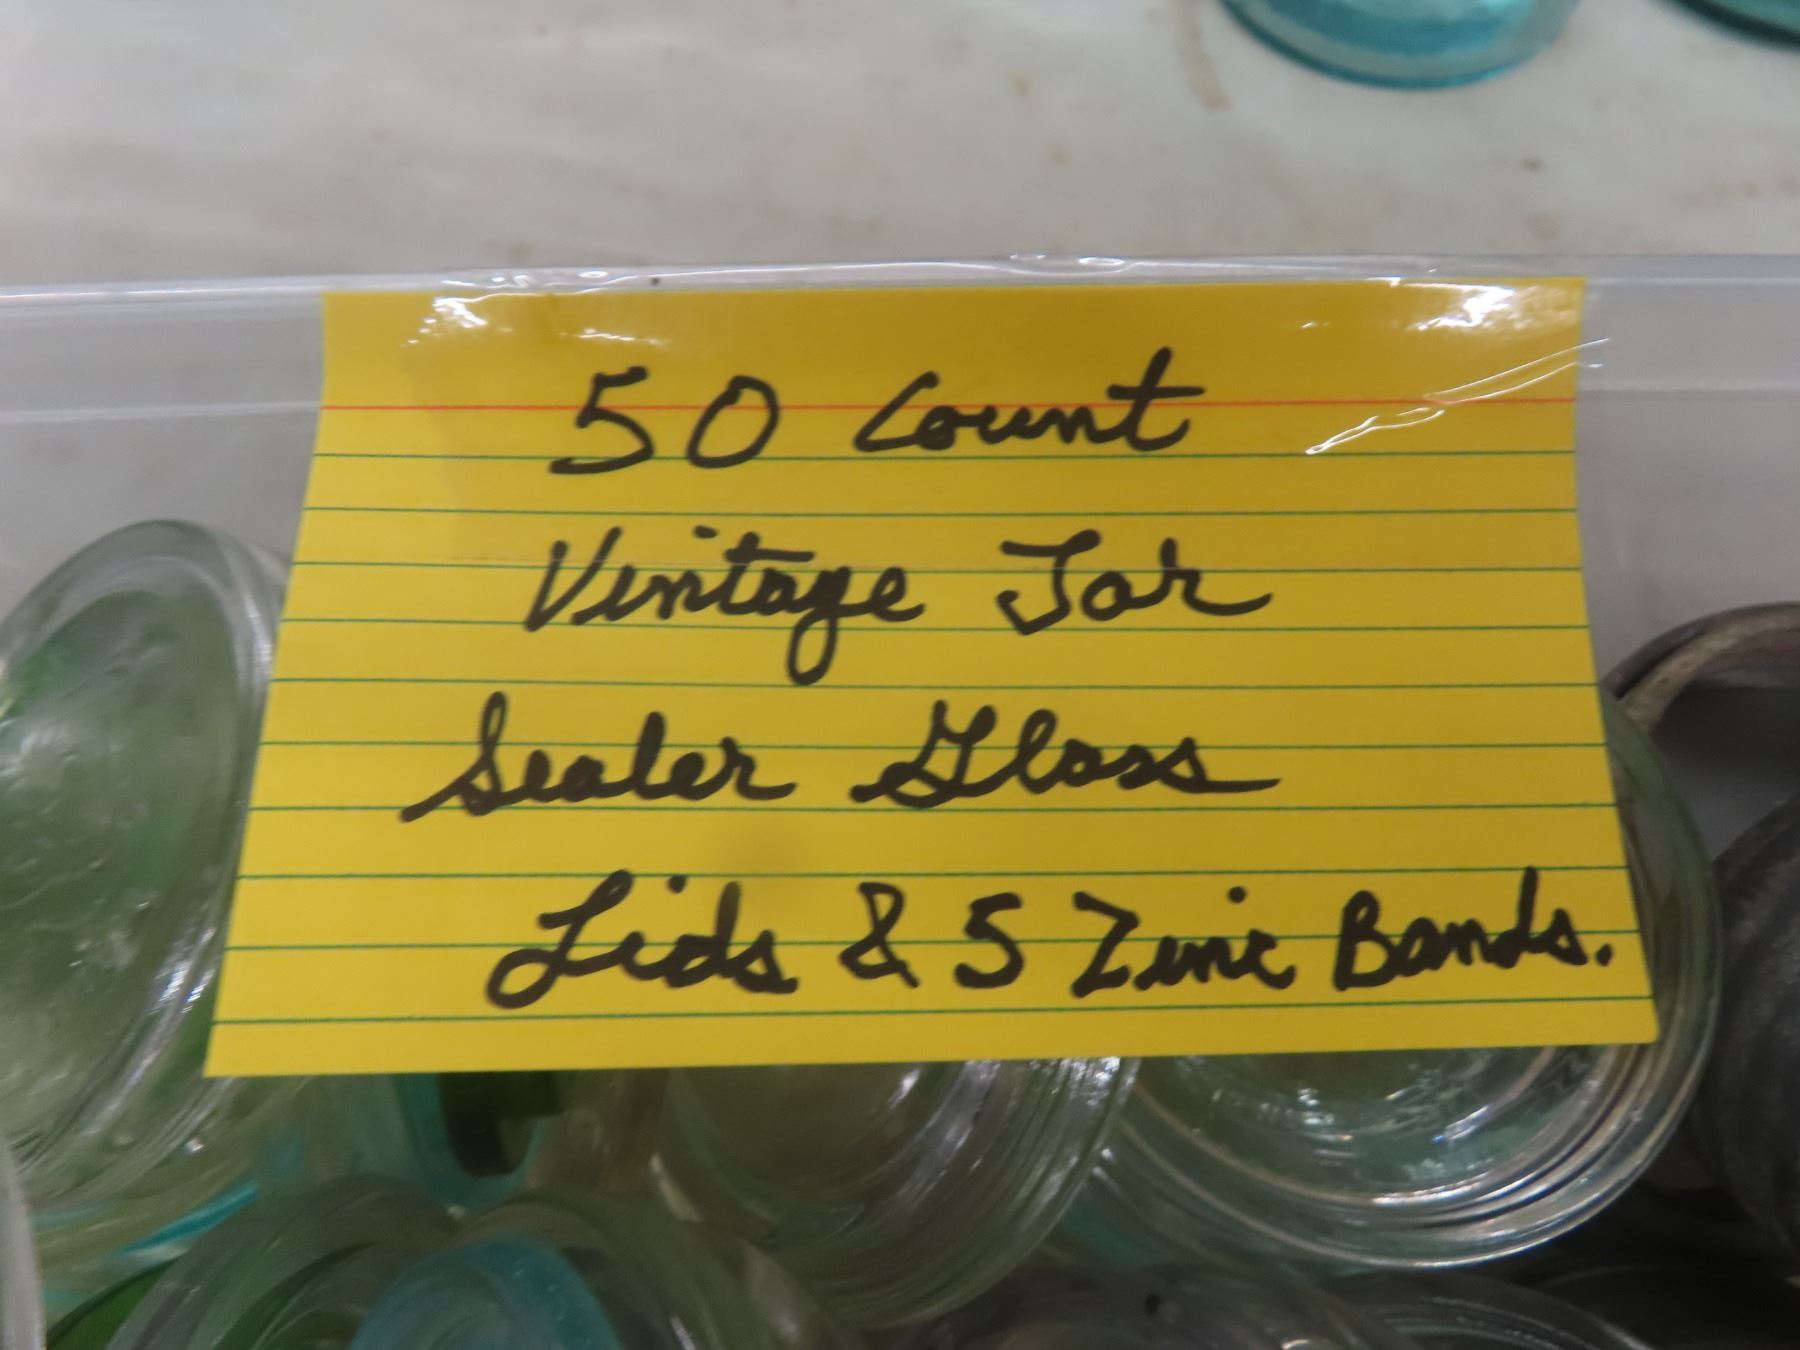 50 Count
Vintage Jar
Sealer Glass
Lids & 5 Zinc Bands.